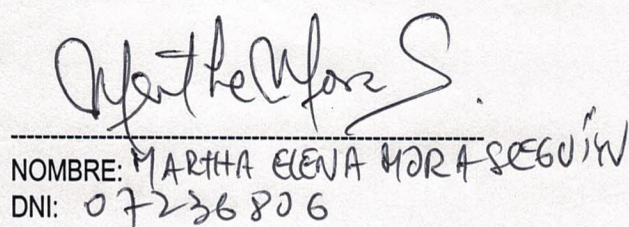 Martha Mora S.
NOMBRE: MARTHA ELENA MORA SEGUÍN
DNI: 07236806